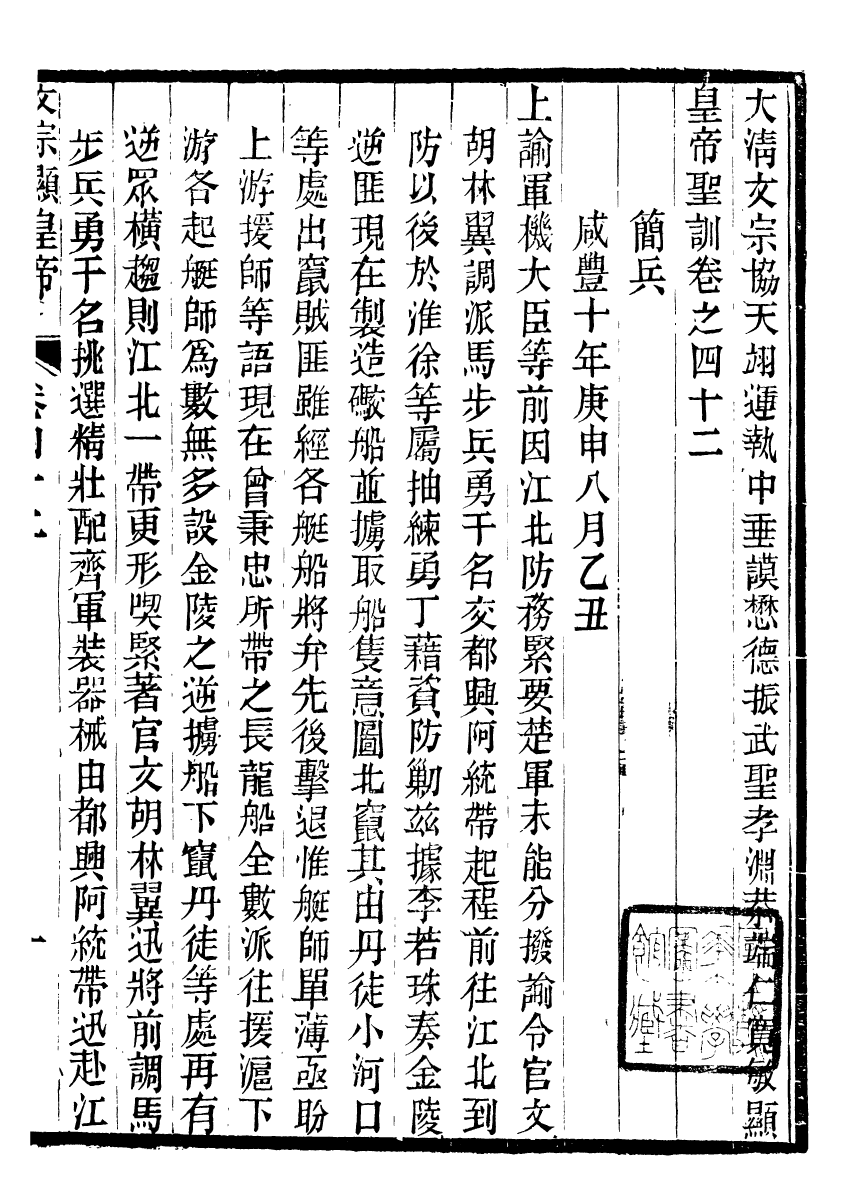 大淸文宗協天翊運執中垂謨懋德振武聖孝淵恭端仁寬敏顯
皇帝聖訓卷之四十二
簡兵
咸豐十年庚申八月乙丑
上諭軍機大臣等前因江北防務緊要楚軍未能分撥諭令官文
胡林翼調派馬步兵勇千名交都興阿統帶起程前往江北到
防以後於淮徐等屬抽練勇丁藉資防勦茲據李若珠奏金陵
逆匪現在製造礮船並擄取船隻意圖北竄其由丹徒小河口
等處出竄賊匪雖經各艇船將弁先後擊退惟艇師單薄亟盼
上游援師等語現在曾秉忠所帶之長龍船全數派往援滬下
游各起艇師爲數無多設金陵之逆擄船下竄丹徒等處再有
逆眾橫趨則江北一帶更形喫緊著官文胡林翼迅將前調馬
步兵勇千名挑選精壯配齊軍裝器械由都興阿統帶迅赴江
文宗顯皇帝 卷四十二 一